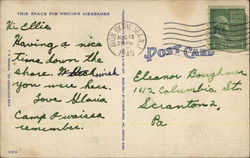 THIS SPACE FOR WRITING MESSAGES
Hi Ellie
Having a nice
time down the
shore. Wish
you were here.
Love Gloria
Camp
remember.
AUG 13
PM
1945
POST CARD
Eleanor Boughman
1412 Columbia St.
Scranton 2,
Pa